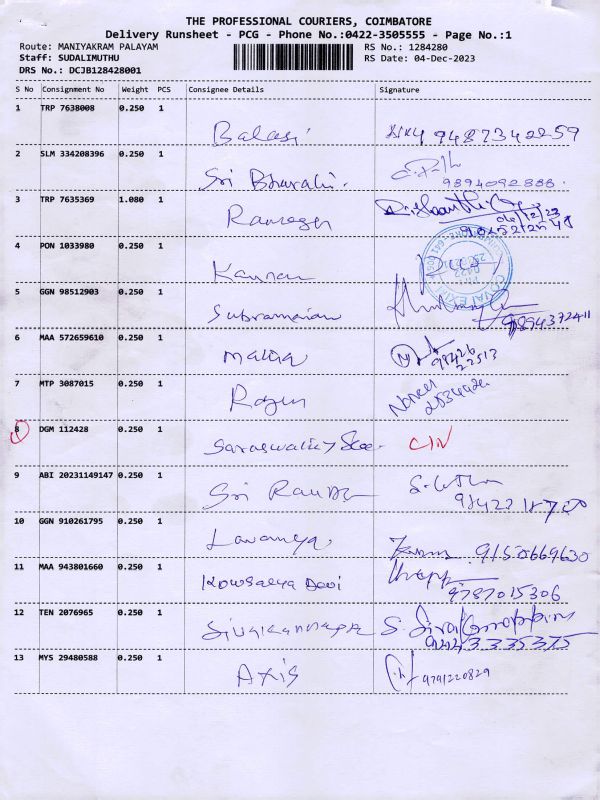 THE PROFESSIONAL COURIERS, COIMBATORE
Delivery Runsheet - PCG - Phone No.:0422-3505555 - Page No.:1
Route: MANIYAKRAM PALAYAM RS No.: 1284280
Staff: SUDALIMUTHU RS Date: 04-Dec-2023
DRS No.: DCJB128428001
S No Consignment No Weight PCS Consignee Details Signature
1 TRP 7638008 0.250 1
Balaji 9487342259
2 SLM 334208396 0.250 1
Sri Bharathi. 9894092888.
3 TRP 7635369 1.080 1
04/12/23
4 PON 1033980 0.250 1
Kannan
5 GGN 98512903 0.250 1
Subramanian 9894372411
6 MAA 572659610 0.250 1
98426
22513
7 MTP 3087015 0.250 1
8 DGM 112428 0.250 1
CIN
9 ABI 20231149147 0.250 1
Sri
10 GGN 910261795 0.250 1
Lavanya 9150669630
11 MAA 943801660 0.250 1
Kowsalya Devi 9787015306
12 TEN 2076965 0.250 1
9443335375
13 MYS 29480588 0.250 1
Axis 9791220829